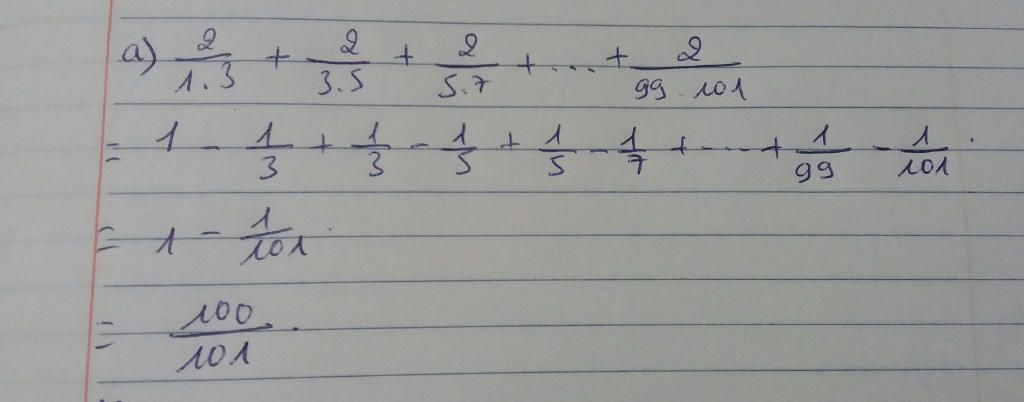 a) 2/1.3 + 2/3.5 + 2/5.7 + ... + 2/99.101
= 1 - 1/3 + 1/3 - 1/5 + 1/5 - 1/7 + ... + 1/99 - 1/101.
= 1 - 1/101.
= 100/101.